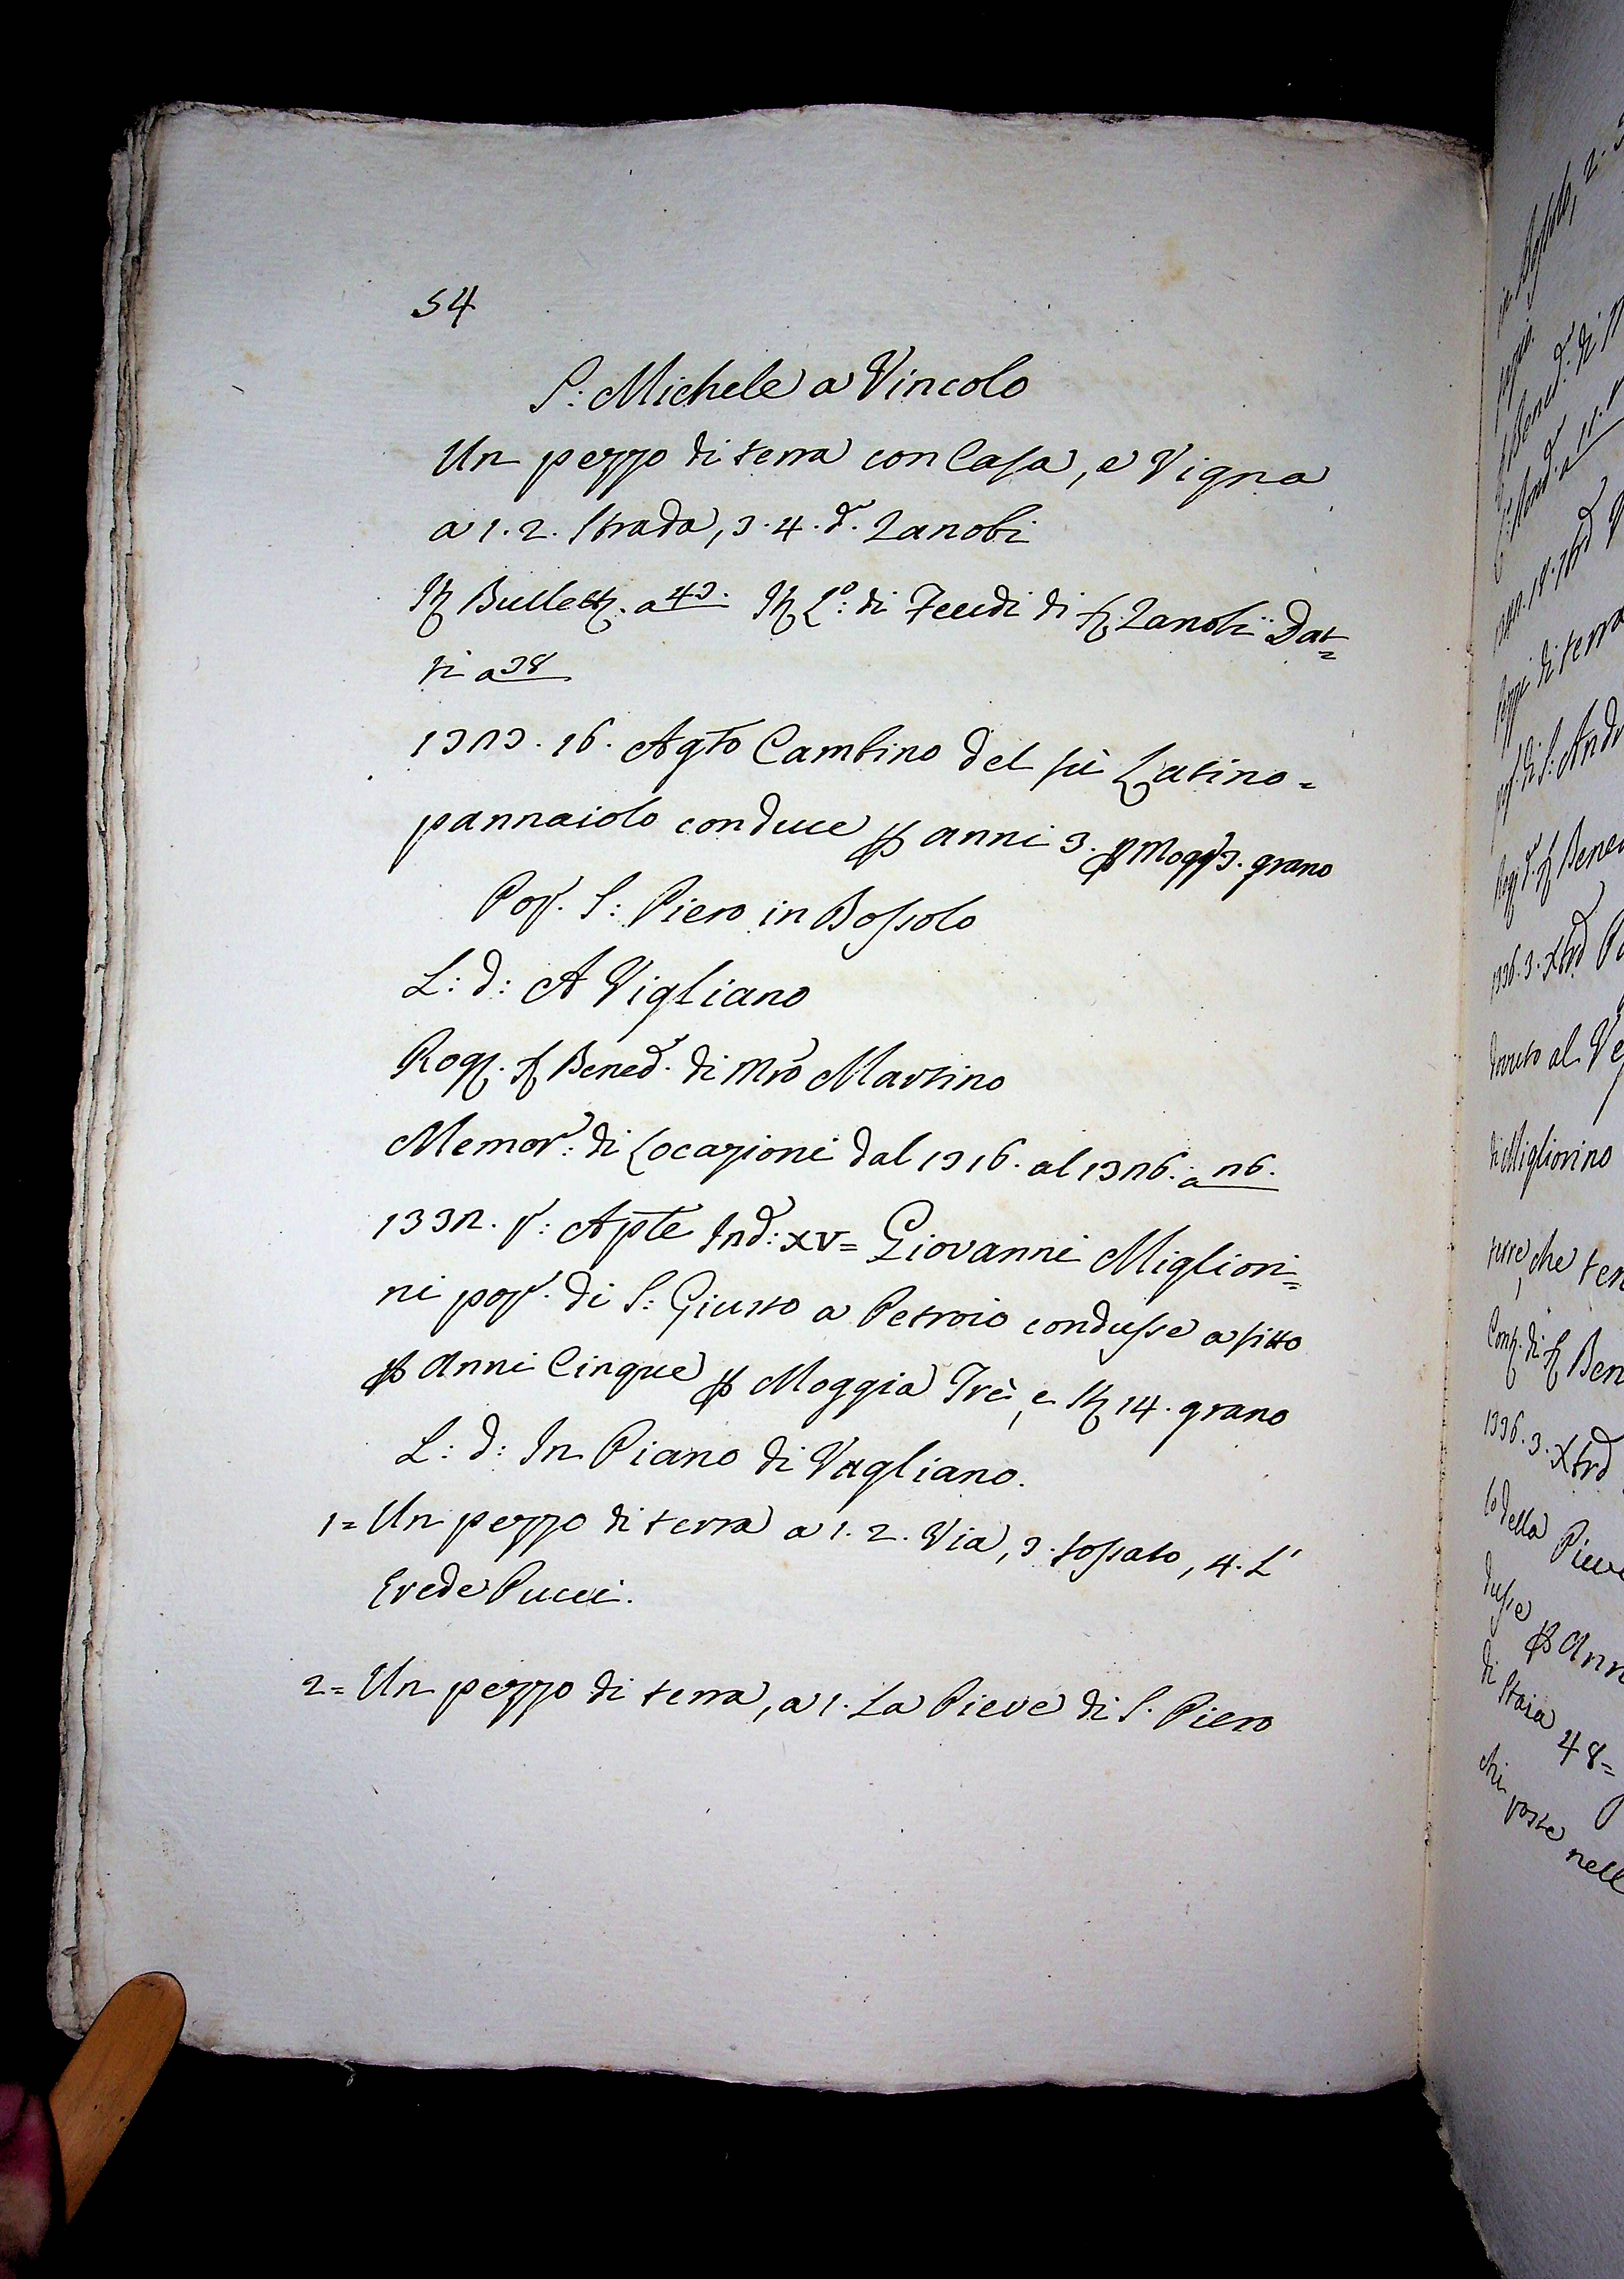 54
S: Michele a Vincolo
Un pezzo di terra con Casa, e Vigna
a 1. 2. Strada, 3. 4. d.o Zanobi
Bullett. a 43. L.o: di Feudi di Zanobi Dat=
ti a 38
16. Agto Cambino del fù Latino=
pannaiolo conduce p anni 3. p Mogg 3. grano
Pop. S: Piero in Bossolo
L: d: A Vigliano
Rog. Bened. di Mro Martino
Memor: di Locazioni dal 1316. al 1326. a 26.
1332. p: Aple Ind: XV= Giovanni Migliori=
ni pop. di S: Giusto a Petroio condusse a fitto
p Anni Cinque p Moggia Trè, e St 14. grano
L: d: In Piano di Vagliano.
1= Un pezzo di terra a 1. 2. Via, 3. fossato, 4. L'
Erede Pucci.
2= Un pezzo di terra, a 1. La Pieve di S. Piero
in Bossolo, 2.
di terra
pop. di S: Andr
1336. 3. Xbre
di Migliorino
terre, che ten
1336. 3. Xbre
della Pieve
dusse p Ann
di Staia 48=
poste nell